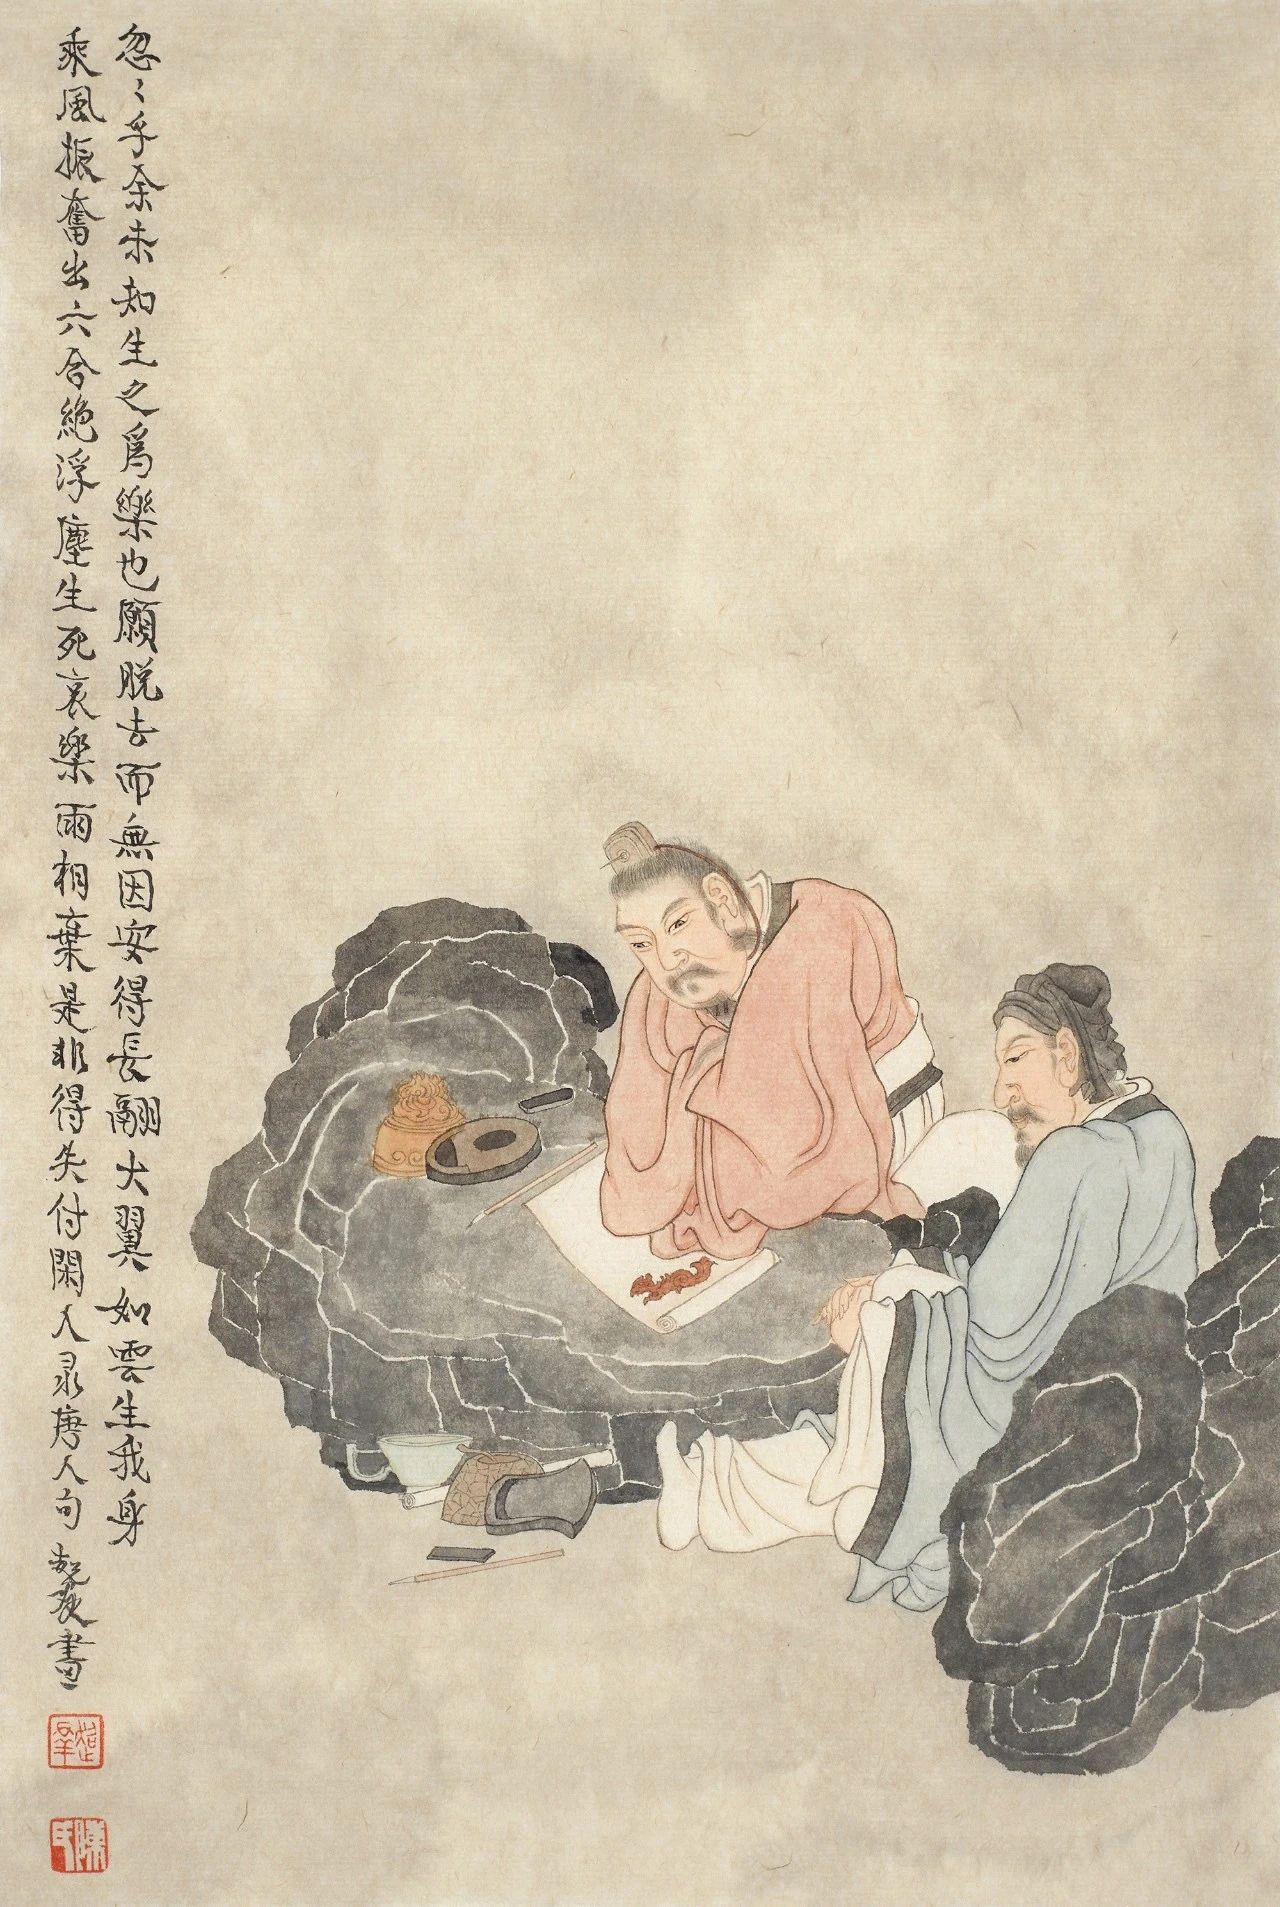 忽〻乎余未知生之爲樂也願脱去而無因安得長翮大翼如雲生我身
乘風振奮出六合絶浮塵生死哀樂兩相棄是非得失付閑人录唐人句
書
陳氏